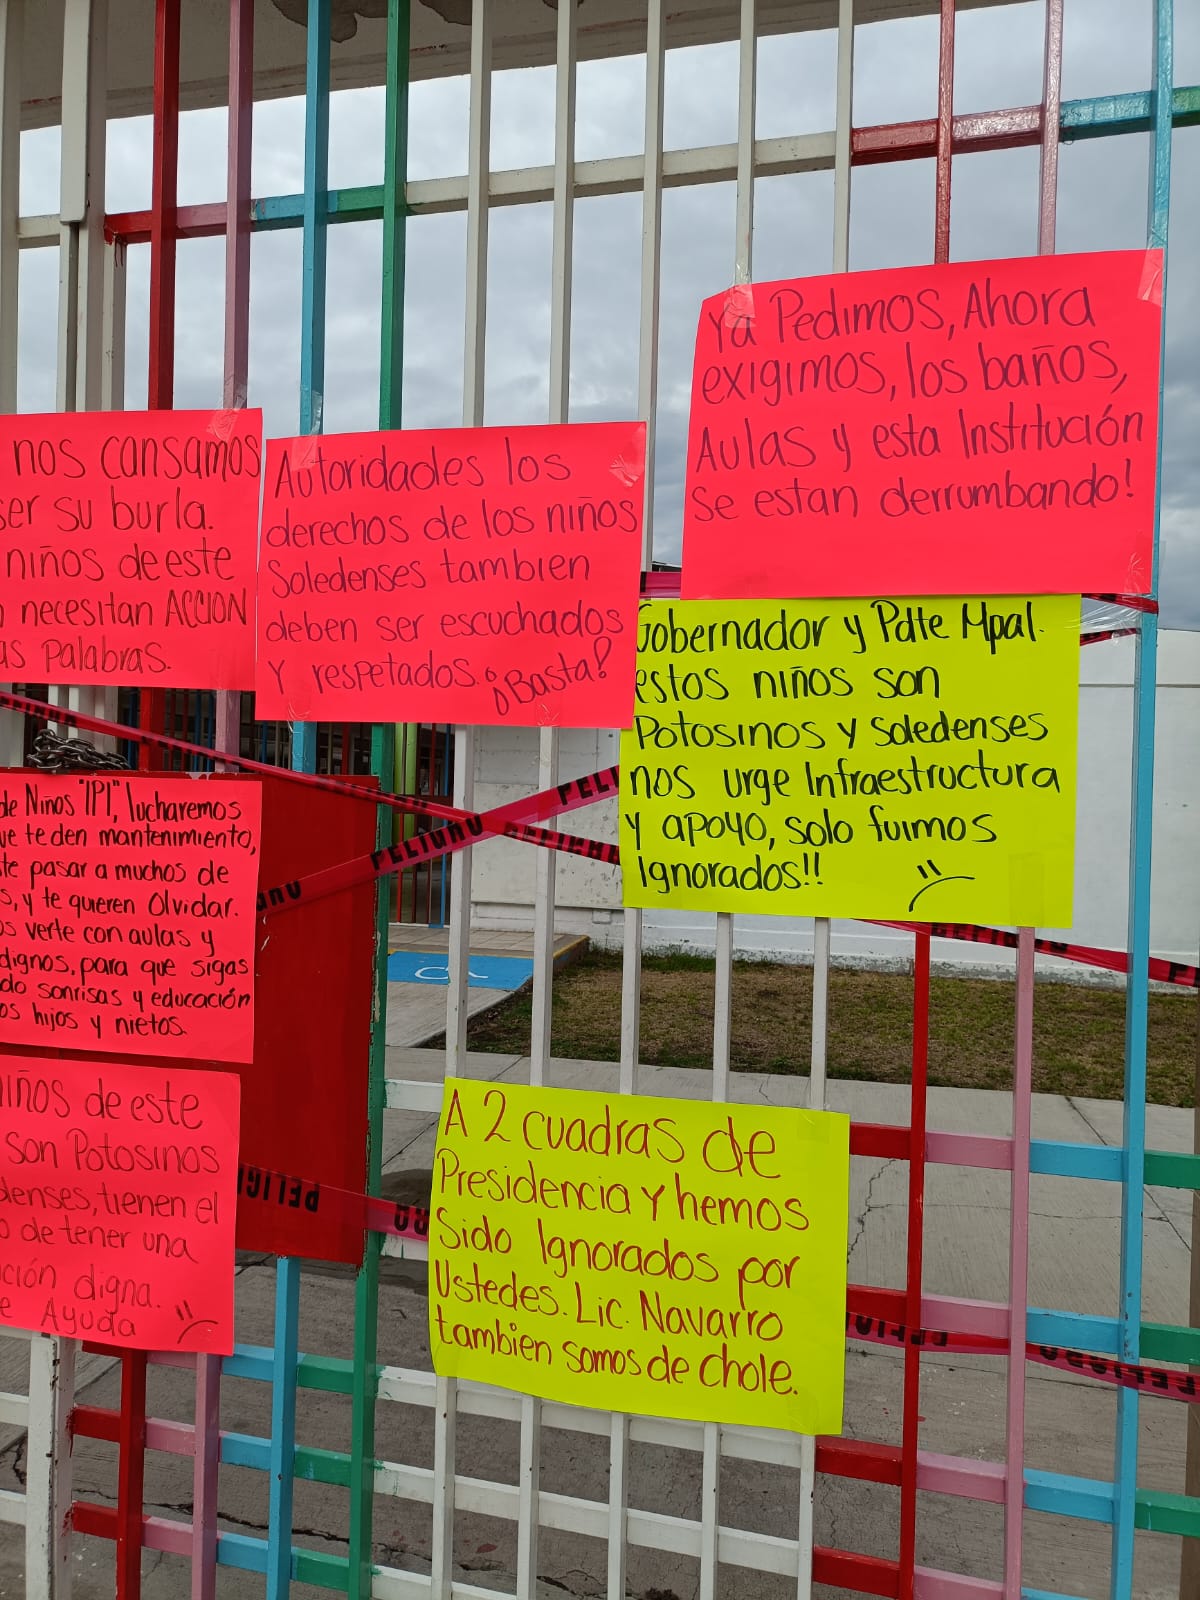 Ya Pedimos, Ahora
exigimos, los baños,
Aulas y esta Institución
se estan derrumbando!
nos cansamos
ser su burla.
niños de este
necesitan ACCION
as Palabras.
Autoridades los
derechos de los niños
Soledenses tambien
deben ser escuchados
Y respetados. ¡Basta!
Gobernador y Pdte Mpal.
estos niños son
Potosinos y Soledenses
nos urge Infraestructura
Y apoyo, solo fuimos
Ignorados!!
de Niños "IPI", lucharemos
que te den mantenimiento,
te pasar a muchos de
s, y te quieren Olvidar.
os verte con aulas y
dignos, para que sigas
do sonrisas y educación
os hijos y nietos.
niños de este
son Potosinos
denses, tienen el
o de tener una
ción digna.
e Ayuda
A 2 cuadras de
Presidencia y hemos
Sido Ignorados por
Ustedes. Lic. Navarro
tambien somos de chole.
PELIGRO
PELIGRO
PELIGRO